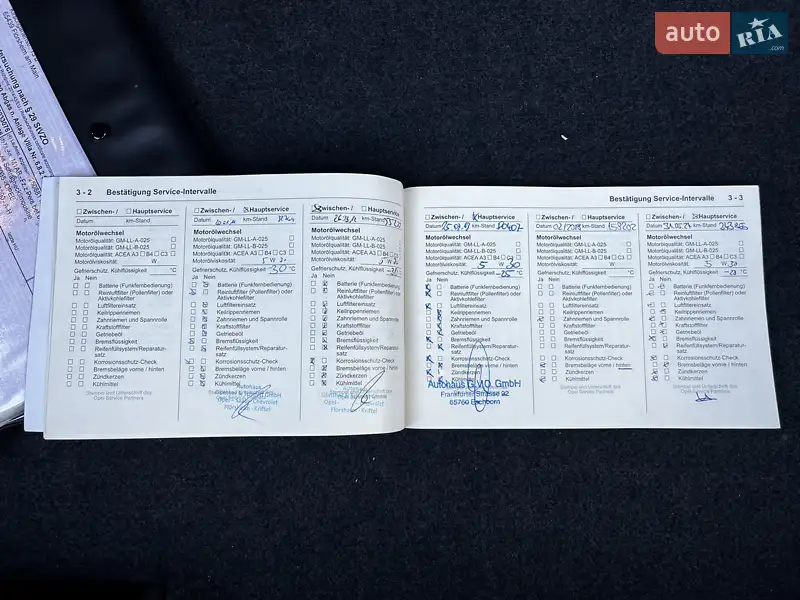 auto RIA.com
65439 Flörsheim am Main
3 - 2 Bestätigung Service-Intervalle
Zwischen- / Hauptservice
Datum km-Stand
Motorölwechsel
Motorölqualität: GM-LL-A-025
Motorölqualität: GM-LL-B-025
Motorölqualität: ACEA A3 B4 C3
Motorölviskosität: W
Gefrierschutz, Kühlflüssigkeit °C
Ja Nein
Batterie (Funkfernbedienung)
Reinluftfilter (Pollenfilter) oder
Aktivkohlefilter
Luftfiltereinsatz
Keilrippenriemen
Zahnriemen und Spannrolle
Kraftstofffilter
Getriebeöl
Bremsflüssigkeit
Reifenfüllsystem/Reparatur-
satz
Korrosionsschutz-Check
Bremsbeläge vorne / hinten
Zündkerzen
Kühlmittel
Stempel und Unterschrift des
Opel Service Partners
Zwischen- / Hauptservice
Datum km-Stand
Motorölwechsel
Motorölqualität: GM-LL-A-025
Motorölqualität: GM-LL-B-025
Motorölqualität: ACEA A3 B4 C3
Motorölviskosität: 5 W
Gefrierschutz, Kühlflüssigkeit -30 °C
Ja Nein
Batterie (Funkfernbedienung)
Reinluftfilter (Pollenfilter) oder
Aktivkohlefilter
Luftfiltereinsatz
Keilrippenriemen
Zahnriemen und Spannrolle
Kraftstofffilter
Getriebeöl
Bremsflüssigkeit
Reifenfüllsystem/Reparatur-
satz
Korrosionsschutz-Check
Bremsbeläge vorne / hinten
Zündkerzen
Kühlmittel
Autohaus
Zwischen- / Hauptservice
Datum km-Stand
Motorölwechsel
Motorölqualität: GM-LL-A-025
Motorölqualität: GM-LL-B-025
Motorölqualität: ACEA A3 B4 C3
Motorölviskosität: 5 W
Gefrierschutz, Kühlflüssigkeit
Ja Nein
Batterie (Funkfernbedienung)
Reinluftfilter (Pollenfilter) oder
Aktivkohlefilter
Luftfiltereinsatz
Keilrippenriemen
Zahnriemen und Spannrolle
Kraftstofffilter
Getriebeöl
Bremsflüssigkeit
Reifenfüllsystem/Reparatur-
satz
Korrosionsschutz-Check
Bremsbeläge vorne / hinten
Zündkerzen
Kühlmittel
Bestätigung Service-Intervalle 3 - 3
Zwischen- / Hauptservice
Datum km-Stand
Motorölwechsel
Motorölqualität: GM-LL-A-025
Motorölqualität: GM-LL-B-025
Motorölqualität: ACEA A3 B4 C3
Motorölviskosität: 5 W 30
Gefrierschutz, Kühlflüssigkeit -25 °C
Ja Nein
Batterie (Funkfernbedienung)
Reinluftfilter (Pollenfilter) oder
Aktivkohlefilter
Luftfiltereinsatz
Keilrippenriemen
Zahnriemen und Spannrolle
Kraftstofffilter
Getriebeöl
Bremsflüssigkeit
Reifenfüllsystem/Reparatur-
satz
Korrosionsschutz-Check
Bremsbeläge vorne / hinten
Zündkerzen
Kühlmittel
Autohaus G.V.O. GmbH
Frankfurter Strasse 92
65760 Eschborn
Zwischen- / Hauptservice
Datum 02/2019 km-Stand
Motorölwechsel
Motorölqualität: GM-LL-A-025
Motorölqualität: GM-LL-B-025
Motorölqualität: ACEA A3 B4 C3
Motorölviskosität: W
Gefrierschutz, Kühlflüssigkeit °C
Ja Nein
Batterie (Funkfernbedienung)
Reinluftfilter (Pollenfilter) oder
Aktivkohlefilter
Luftfiltereinsatz
Keilrippenriemen
Zahnriemen und Spannrolle
Kraftstofffilter
Getriebeöl
Bremsflüssigkeit
Reifenfüllsystem/Reparatur-
satz
Korrosionsschutz-Check
Bremsbeläge vorne / hinten
Zündkerzen
Kühlmittel
Stempel und Unterschrift des
Opel Service Partners
Zwischen- / Hauptservice
Datum km-Stand
Motorölwechsel
Motorölqualität: GM-LL-A-025
Motorölqualität: GM-LL-B-025
Motorölqualität: ACEA A3 B4 C3
Motorölviskosität: 5 W 30
Gefrierschutz, Kühlflüssigkeit °C
Ja Nein
Batterie (Funkfernbedienung)
Reinluftfilter (Pollenfilter) oder
Aktivkohlefilter
Luftfiltereinsatz
Keilrippenriemen
Zahnriemen und Spannrolle
Kraftstofffilter
Getriebeöl
Bremsflüssigkeit
Reifenfüllsystem/Reparatur-
satz
Korrosionsschutz-Check
Bremsbeläge vorne / hinten
Zündkerzen
Kühlmittel
Stempel und Unterschrift des
Opel Service Partners